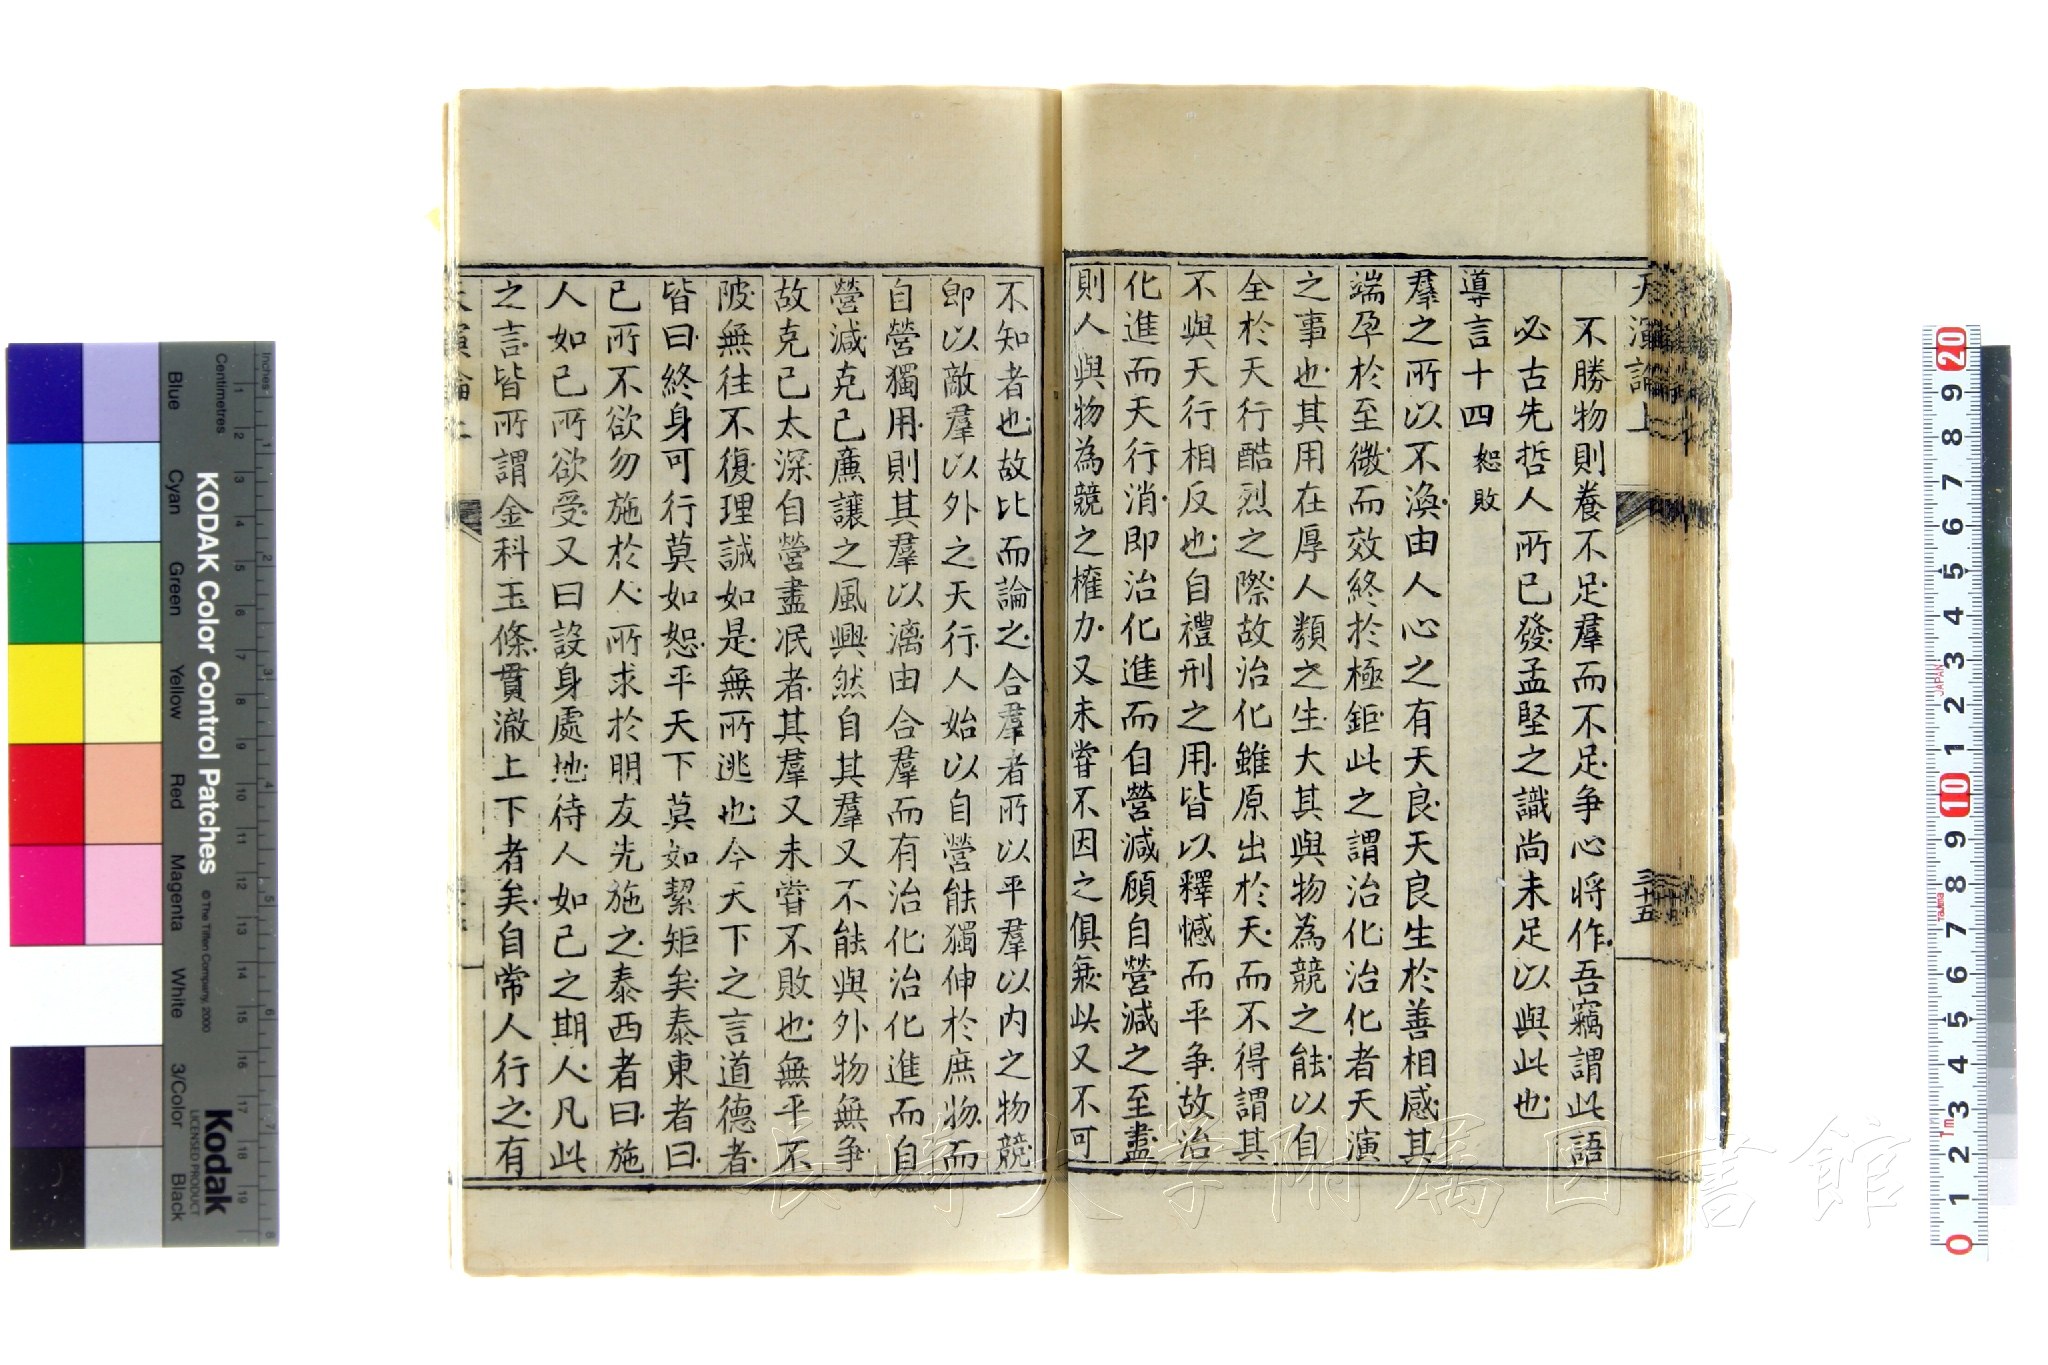 天演論上
三十五
不勝物則養不足羣而不足爭心將作吾竊謂此語
必古先哲人所已發孟堅之識尚未足以與此也
導言十四 恕敗
羣之所以不渙由人心之有天良天良生於善相感其
端孕於至微而效終於極鉅此之謂治化治化者天演
之事也其用在厚人類之生大其與物為競之能以自
全於天行酷烈之際故治化雖原出於天而不得謂其
不與天行相反也自禮刑之用皆以釋憾而平爭故治
化進而天行消即治化進而自營減顧自營減之至盡
則人與物為競之權力又未嘗不因之俱衰此又不可
不知者也故比而論之合羣者所以平羣以內之物競
即以敵羣以外之天行人始以自營能獨伸於庶物而
自營獨用則其羣以漓由合羣而有治化治化進而自
營減克己廉讓之風興然自其羣又不能與外物無爭
故克己太深自營盡泯者其羣又未嘗不敗也無平不
陂無往不復理誠如是無所逃也今天下之言道德者
皆曰終身可行莫如恕平天下莫如絜矩矣泰東者曰
己所不欲勿施於人所求於朋友先施之泰西者曰施
人如己所欲受又曰設身處地待人如己之期人凡此
之言皆所謂金科玉條貫澈上下者矣自常人行之有
長崎大学附属図書館
KODAK Color Control Patches
© The Tiffen Company, 2000
Kodak
LICENSED PRODUCT
Inches
Centimetres
Blue
Cyan
Green
Yellow
Red
Magenta
White
3/Color
Black
JAPAN
Tajima